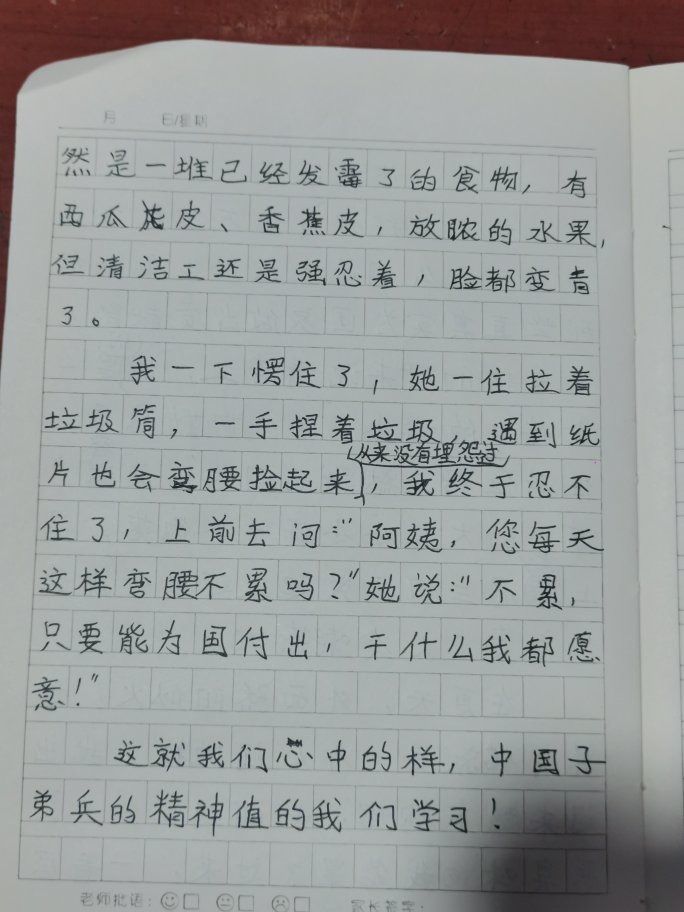 月 日/星期
然是一堆已经发霉了的食物，有
西瓜皮、香蕉皮，放脓的水果，
但清洁工还是强忍着，脸都变青
了。
我一下愣住了，她一住拉着
垃圾筒，一手捏着垃圾，遇到纸
从来没有埋怨过
片也会弯腰捡起来，我终于忍不
住了，上前去问："阿姨，您每天
这样弯腰不累吗？"她说："不累，
只要能为国付出，干什么我都愿
意！"
这就我们心中的样，中国子
弟兵的精神值的我们学习！
老师批语： 家长签字：